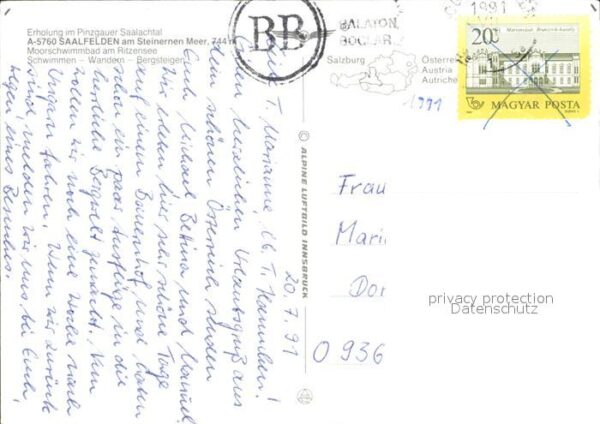 Erholung im Pinzgauer Saalachtal
A-5760 SAALFELDEN am Steinernen Meer, 744 m
Moorschwimmbad am Ritzensee
Schwimmen – Wandern – Bergsteigen
BB
BALATON
BOGLÁR
1991
Salzburg
Österreich
Austria
Autriche
1991
20 Ft
MAGYAR POSTA
© ALPINE LUFTBILD INNSBRUCK
20.7.91
T. Marianne,
herzlichen Urlaubsgruß aus
dem schönen Österreich senden
Euch Michael, Bettina und
Wir erleben hier sehr schöne Tage
auf einem Bauernhof und haben
schon ein paar Ausflüge in die
herrliche Bergwelt gemacht. Nun
wollen wir noch eine Woche nach
Ungarn fahren. Wenn wir zurück
sind, melden wir uns bei Euch,
wegen eines Besuches.
Frau
Mari
Dor
O 936
privacy protection
Datenschutz